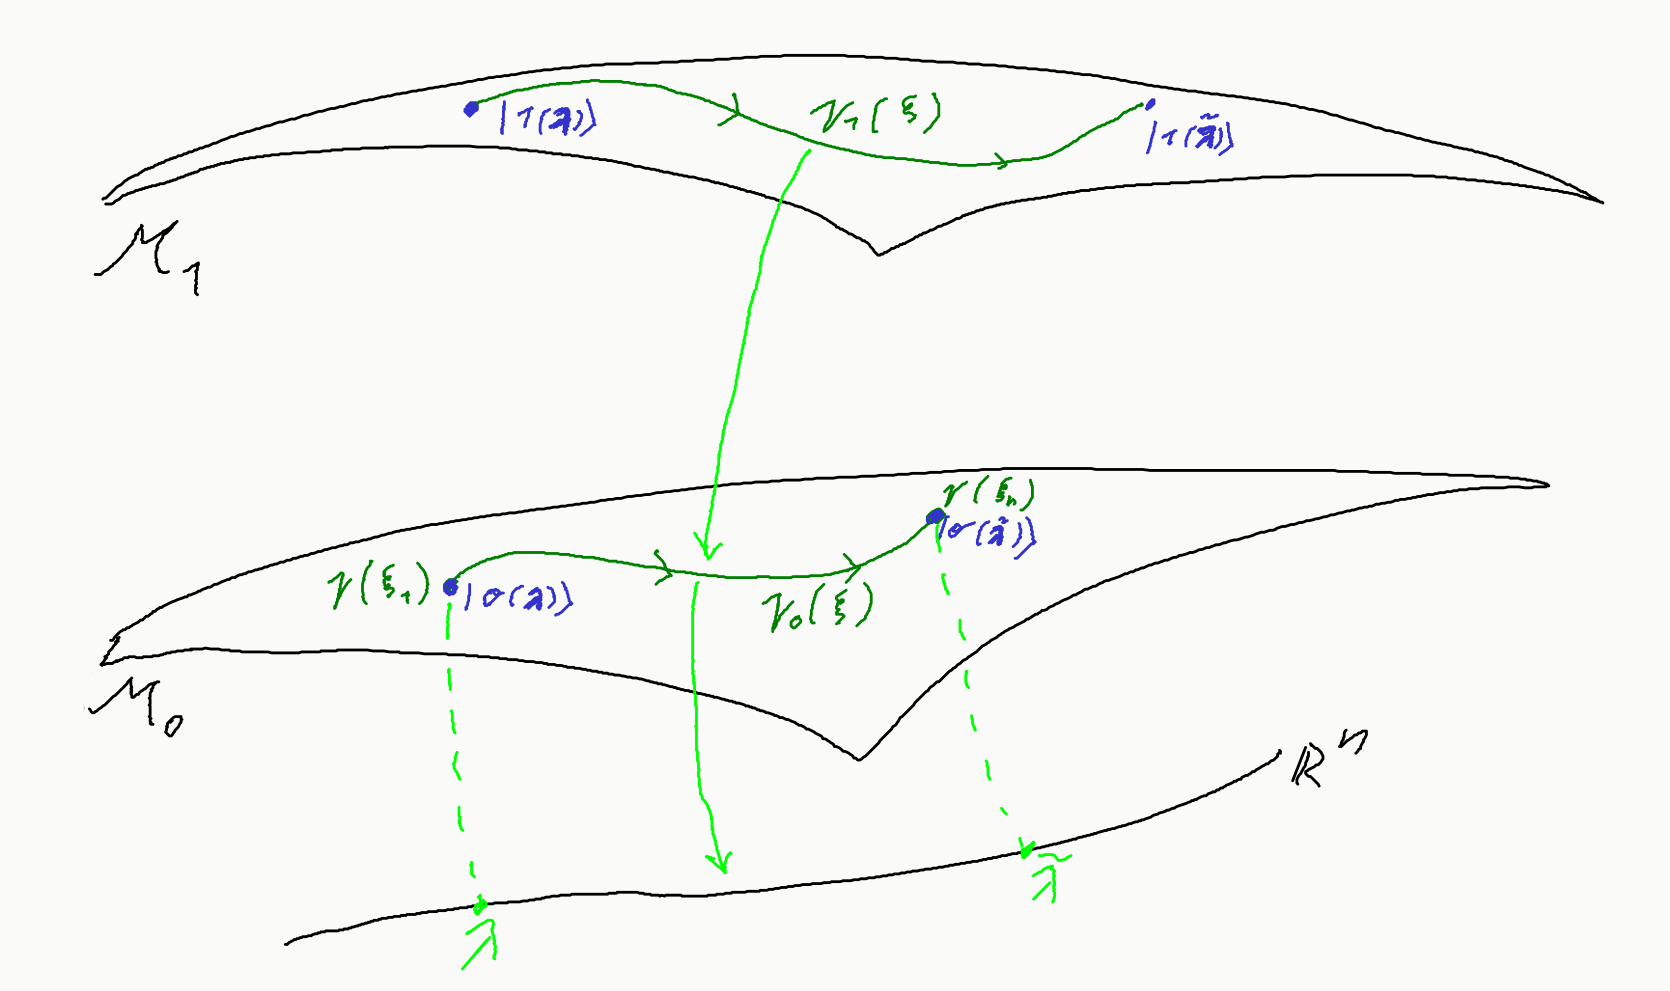 |1(λ)⟩
γ₁(ξ)
|1(λ̃)⟩
M₁
γ(ξₙ)
|σ(λ̃)⟩
γ(ξ₁)
|σ(λ)⟩
γ₀(ξ)
M₀
ℝⁿ
λ̃
λ